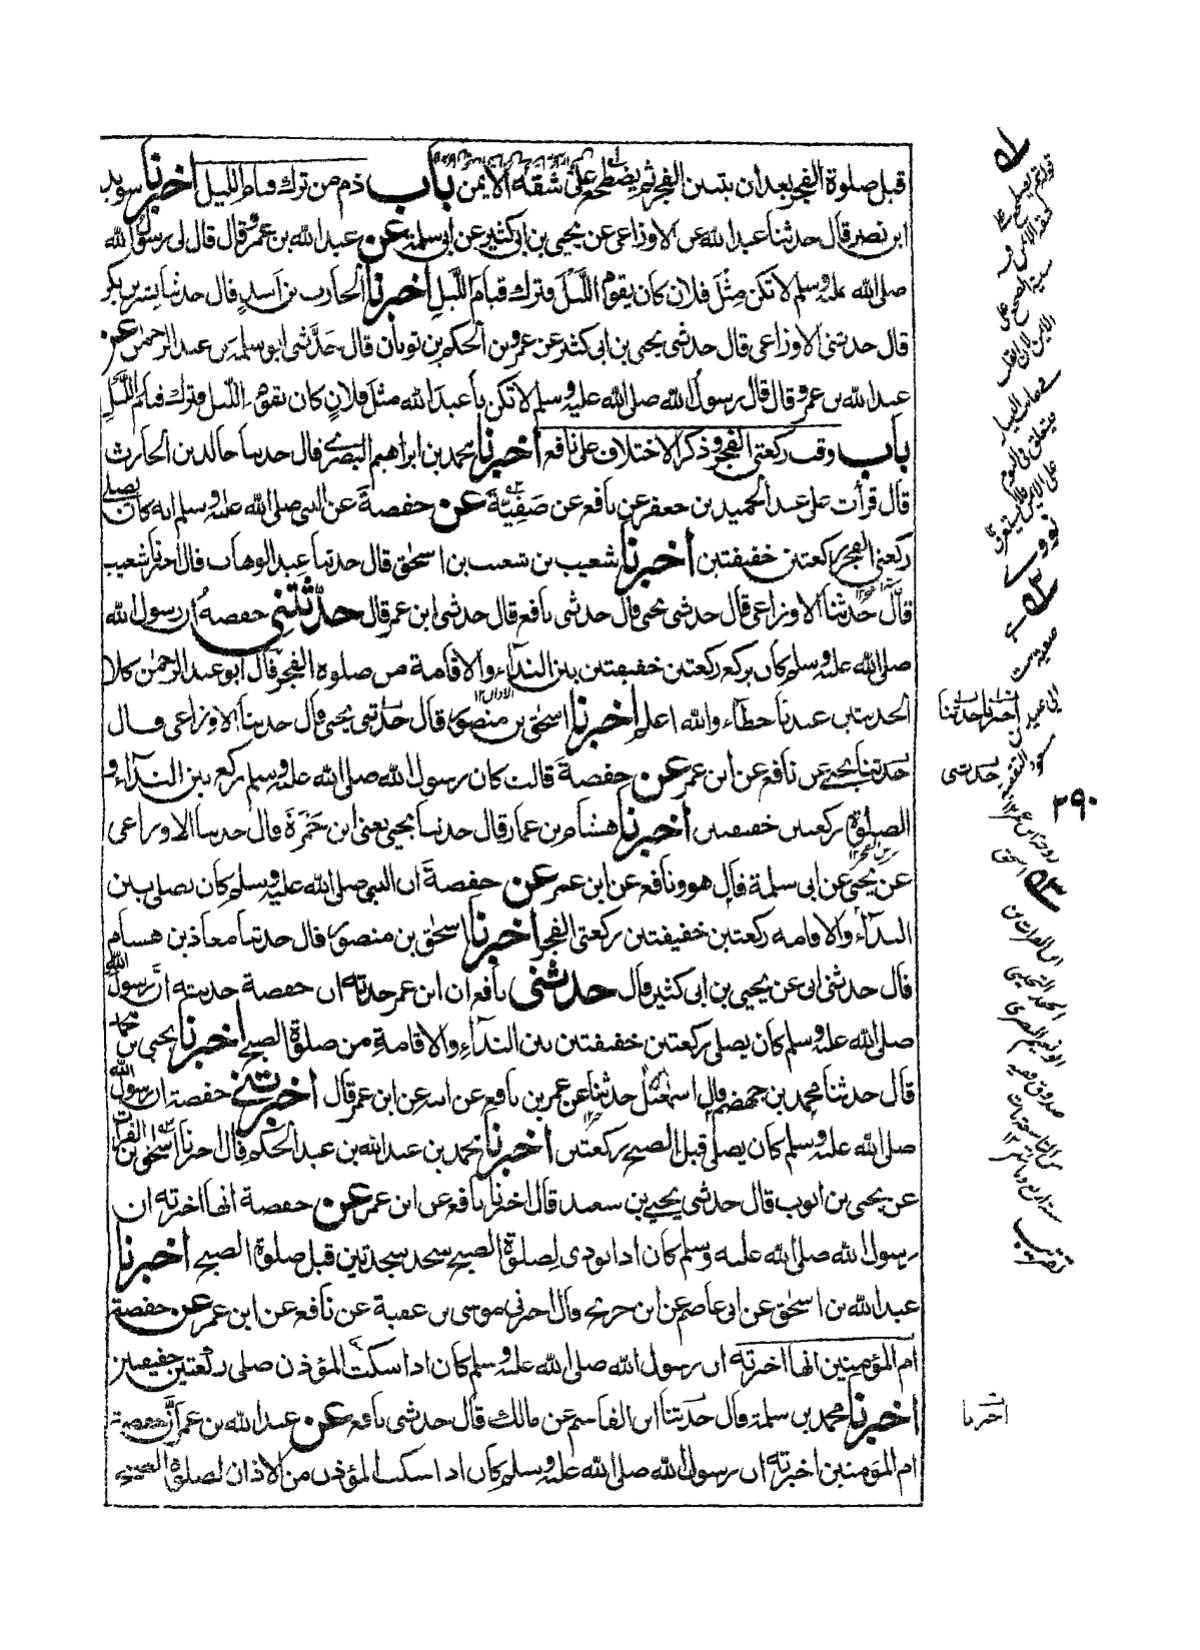 قبل صلوة الفجر بعد ان يتبين الفجر ثم يضطجع على شقه الايمن باب ذم من ترك قيام الليل اخبرنا سويد
ابن نصر قال حدثنا عبد الله عن الاوزاعى عن يحيى بن ابى كثير عن ابى سلمة عن عبد الله بن عمرو قال قال لى رسول الله
صلى الله عليه وسلم لا تكن مثل فلان كان يقوم الليل فترك قيام الليل اخبرنا الحارث بن اسد قال حدثنا بشر بن بكر
قال حدثنى الاوزاعى قال حدثنى يحيى بن ابى كثير عن عمرو بن الحكم بن ثوبان قال حدثنى ابو سلمة بن عبد الرحمن عن
عبد الله بن عمرو قال قال رسول الله صلى الله عليه وسلم لا تكن يا عبد الله مثل فلان كان يقوم الليل فترك قيام الليل
باب وقت ركعتى الفجر وذكر الاختلاف على نافع اخبرنا محمد بن ابراهيم البصرى قال حدثنا خالد بن الحارث
قال قرأت على عبد الحميد بن جعفر عن نافع عن صفية عن حفصة عن النبى صلى الله عليه وسلم انه كان يصلى
ركعتى الفجر ركعتين خفيفتين اخبرنا شعيب بن شعيب بن اسحق قال حدثنا عبد الوهاب قال اخبرنا شعيب
قال حدثنا الاوزاعى قال حدثنى يحيى قال حدثنى نافع قال حدثنى ابن عمر قال حدثتنى حفصة ان رسول الله
صلى الله عليه وسلم كان يركع ركعتين خفيفتين بين النداء والاقامة من صلوة الفجر قال ابو عبد الرحمن كلا
الحديثين عندنا خطاء والله اعلم اخبرنا اسحق بن منصور قال حدثنى يحيى قال حدثنا الاوزاعى قال
حدثنا يحيى عن نافع عن ابن عمر عن حفصة قالت كان رسول الله صلى الله عليه وسلم يركع بين النداء و
الصلوة ركعتين خفيفتين اخبرنا هشام بن عمار قال حدثنا يحيى يعنى ابن حمزة قال حدثنا الاوزاعى
عن يحيى عن ابى سلمة قال هو ونافع عن ابن عمر عن حفصة ان النبى صلى الله عليه وسلم كان يصلى بين
النداء والاقامة ركعتين خفيفتين ركعتى الفجر اخبرنا اسحق بن منصور قال حدثنا معاذ بن هشام
قال حدثنى ابى عن يحيى بن ابى كثير قال حدثنى نافع ان ابن عمر حدثه ان حفصة حدثته ان رسول الله
صلى الله عليه وسلم كان يصلى ركعتين خفيفتين بين النداء والاقامة من صلوة الصبح اخبرنا يحيى بن محمد
قال حدثنا محمد بن جهضم قال اسمعيل حدثنا عن عمر بن نافع عن ابيه عن ابن عمر قال اخبرتنى حفصة ان رسول الله
صلى الله عليه وسلم كان يصلى قبل الصبح ركعتين اخبرنا محمد بن عبد الله بن عبد الحكم قال اخبرنا اسحق بن الفرات
عن يحيى بن ايوب قال حدثنى يحيى بن سعيد قال اخبرنا نافع عن ابن عمر عن حفصة انها اخبرته ان
رسول الله صلى الله عليه وسلم كان اذا نودى لصلوة الصبح سجد سجدتين قبل صلوة الصبح اخبرنا
عبد الله بن اسحق عن ابى عاصم عن ابن جريج قال اخبرنى موسى بن عقبة عن نافع عن ابن عمر عن حفصة
ام المؤمنين انها اخبرته ان رسول الله صلى الله عليه وسلم كان اذا سكت المؤذن صلى ركعتين خفيفتين
اخبرنا محمد بن سلمة قال حدثنا ابن القاسم عن مالك قال حدثنى نافع عن عبد الله بن عمر ان حفصة
ام المؤمنين اخبرته ان رسول الله صلى الله عليه وسلم كان اذا سكت المؤذن من الاذان لصلوة الصبح
اخبرنا حدثنا
حدثنى
٢٩٠
تقريب
اخبرنا